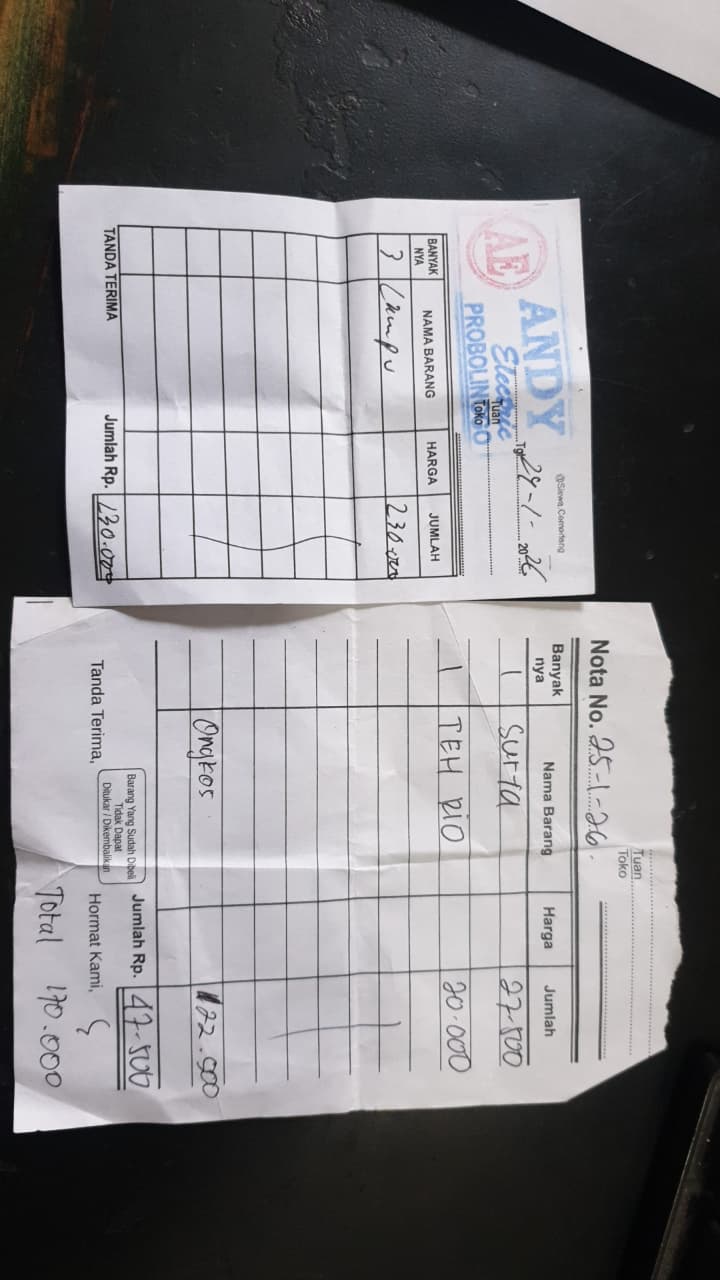 @Siswa Cemerlang
AE ANDY
Electric
PROBOLINGGO
Tgl. 24-1- 2026
Tuan
Toko
BANYAK NYA NAMA BARANG HARGA JUMLAH
3 Lampu 230.000
TANDA TERIMA Jumlah Rp. 230.000
Tuan
Toko
Nota No. 25-1-26.
Banyak nya Nama Barang Harga Jumlah
1 Surya 27.500
1 TEH RIO 20.000
Ongkos 122.500
Jumlah Rp. 47.500
Tanda Terima,
Barang Yang Sudah Dibeli
Tidak Dapat
Ditukar / Dikembalikan
Hormat Kami,
Total 170.000